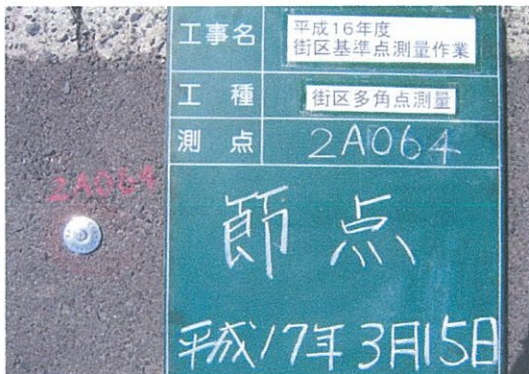 工事名
平成16年度
街区基準点測量作業
工種
街区多角点測量
測点
2A064
2A064
節点
平成17年3月15日